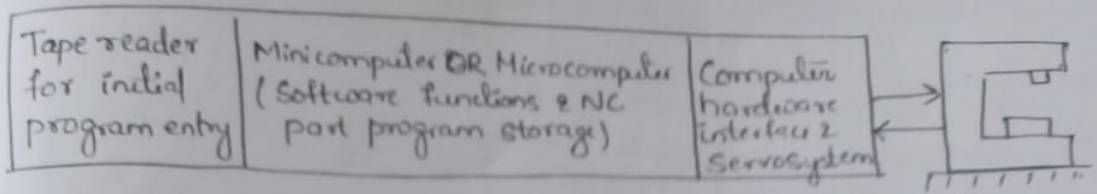 Tape reader
for initial
program entry
Minicomputer OR Microcomputer
(Software functions & NC
part program storage)
Computer
hardware
interface &
servosystem